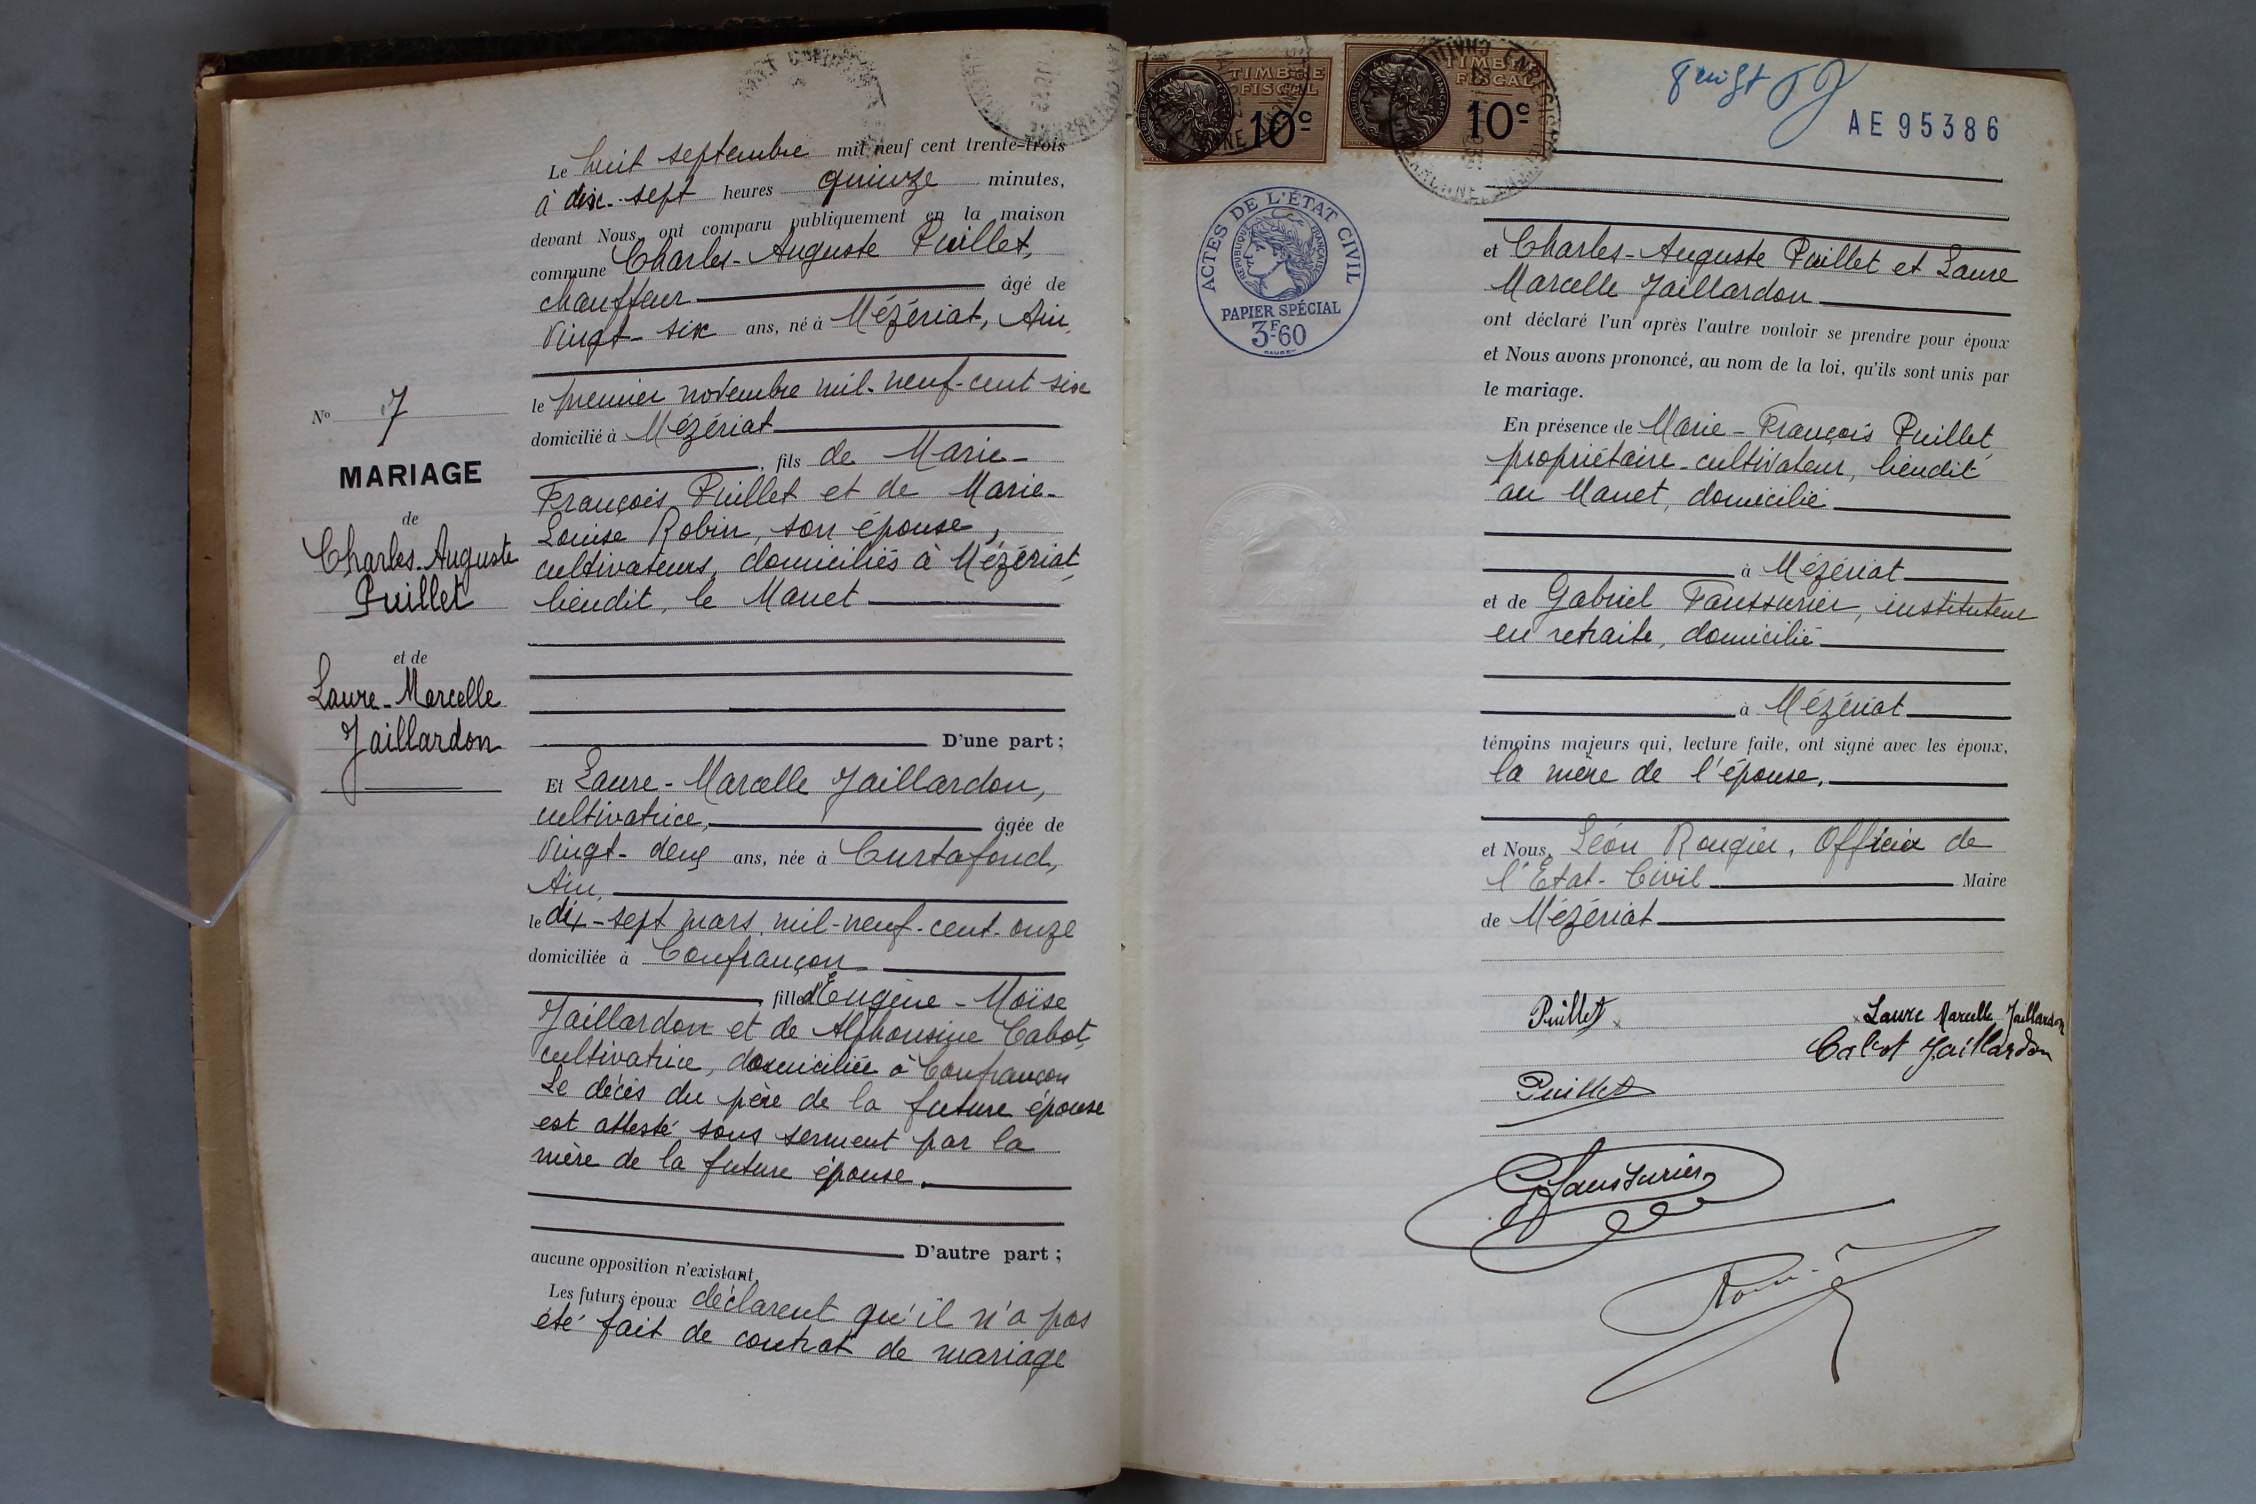 N° 7
MARIAGE
de
Charles-Auguste
Puillet
et de
Laure-Marcelle
Jaillardon
Le huit septembre mil neuf cent trente-trois
à dix-sept heures quinze minutes,
devant Nous, ont comparu publiquement en la maison
commune Charles-Auguste Puillet,
chauffeur âgé de
vingt-six ans, né à Mézériat, Ain,
le premier novembre mil-neuf-cent-six
domicilié à Mézériat
, fils de Marie-
François Puillet et de Marie-
Louise Robin, son épouse,
cultivateurs, domiciliés à Mézériat,
lieudit, le Manet
D'une part ;
Et Laure-Marcelle Jaillardon,
cultivatrice, âgée de
vingt-deux ans, née à Curtafond,
Ain,
le dix-sept mars mil-neuf-cent-onze
domiciliée à Confrançon
, fille d'Eugène-Moïse
Jaillardon et de Alphonsine Cabot,
cultivatrice, domiciliée à Confrançon
Le décès du père de la future épouse
est attesté sous serment par la
mère de la future épouse.
D'autre part ;
aucune opposition n'existant.
Les futurs époux déclarent qu'il n'a pas
été fait de contrat de mariage
TIMBRE FISCAL 10c
TIMBRE FISCAL 10c
AE 95386
ACTES DE L'ÉTAT CIVIL
RÉPUBLIQUE FRANÇAISE
PAPIER SPÉCIAL
3F60
et Charles-Auguste Puillet et Laure
Marcelle Jaillardon
ont déclaré l'un après l'autre vouloir se prendre pour époux
et Nous avons prononcé, au nom de la loi, qu'ils sont unis par
le mariage.
En présence de Marie-François Puillet,
propriétaire-cultivateur, lieudit
au Manet, domicilié
à Mézériat
et de Gabriel Faussurier, instituteur
en retraite, domicilié
à Mézériat
témoins majeurs qui, lecture faite, ont signé avec les époux,
la mère de l'épouse,
et Nous, Léon Rougier, Officier de
l'Etat-Civil Maire
de Mézériat
Puillet Laure Marcelle Jaillardon
Cabot Jaillardon
Puillet
G Faussurier